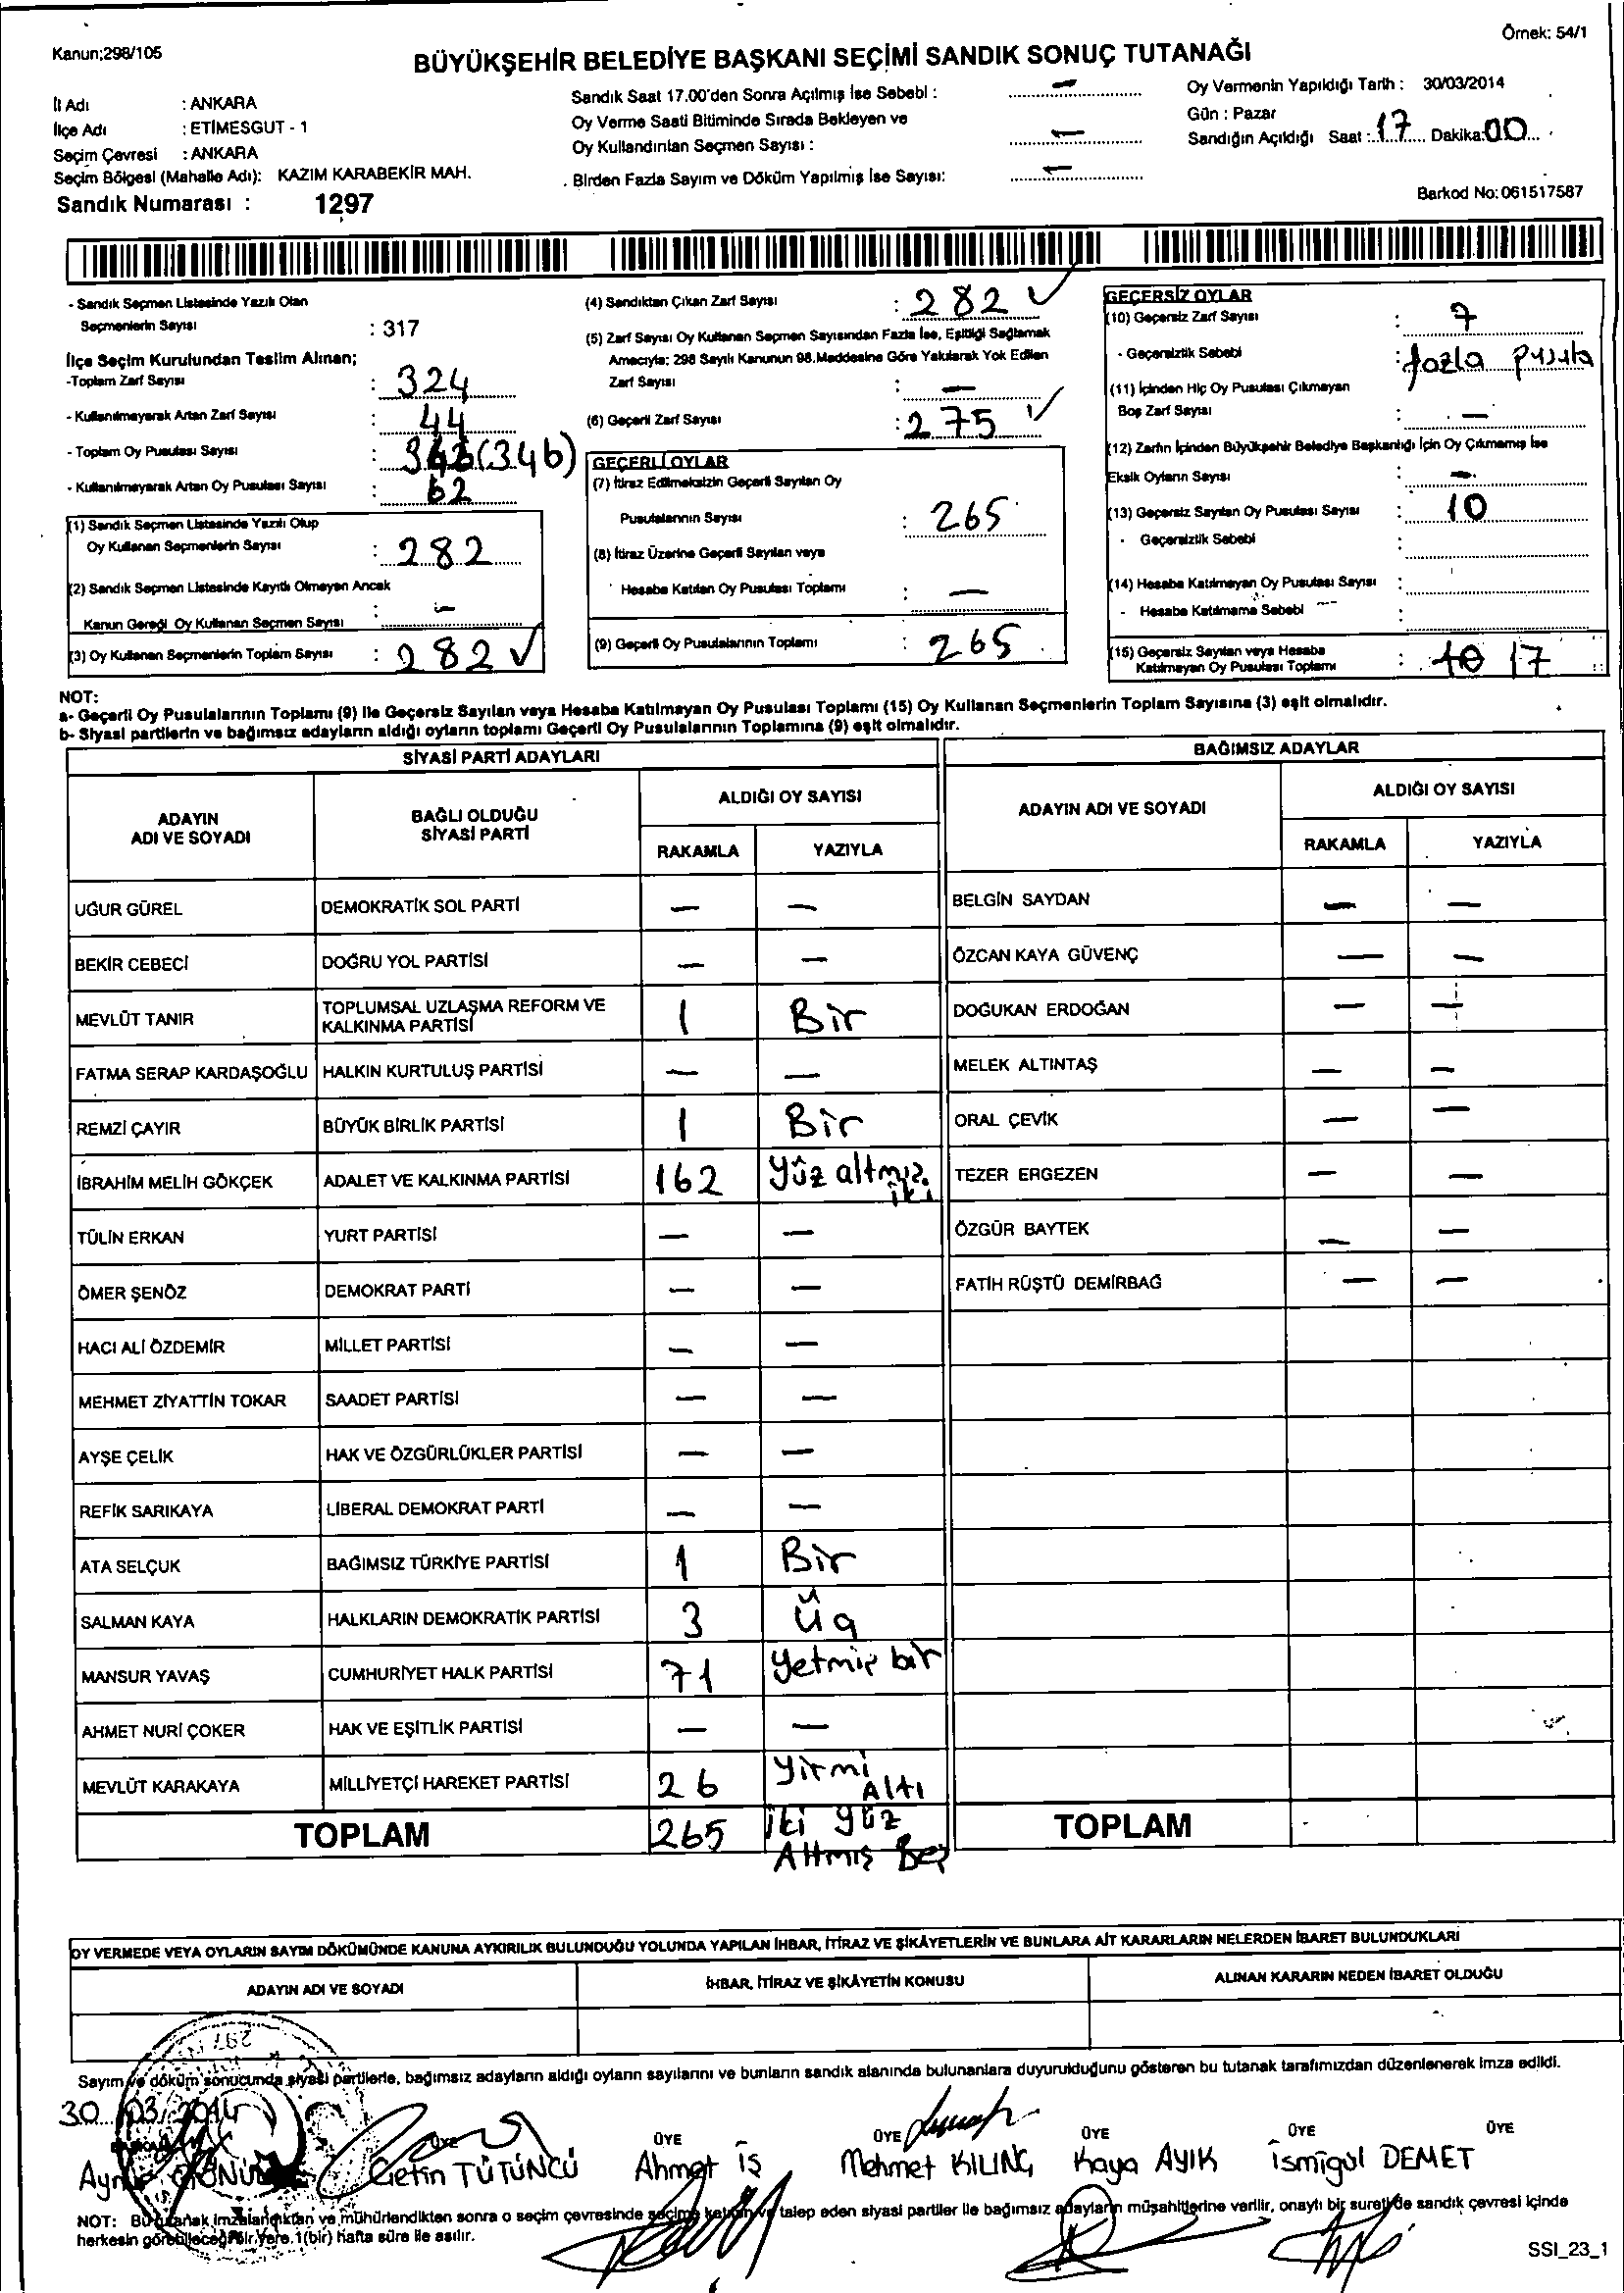 Kanun;298/105
Örnek: 54/1
BÜYÜKŞEHİR BELEDİYE BAŞKANI SEÇİMİ SANDIK SONUÇ TUTANAĞI
İl Adı : ANKARA
İlçe Adı : ETİMESGUT - 1
Seçim Çevresi : ANKARA
Seçim Bölgesi (Mahalle Adı): KAZIM KARABEKİR MAH.
Sandık Numarası : 1297
Sandık Saat 17.00'den Sonra Açılmış İse Sebebi : —
Oy Verme Saati Bitiminde Sırada Bekleyen ve
Oy Kullandırılan Seçmen Sayısı : —
Birden Fazla Sayım ve Döküm Yapılmış İse Sayısı: —
Oy Vermenin Yapıldığı Tarih : 30/03/2014
Gün : Pazar
Sandığın Açıldığı Saat : 17 Dakika: 00
Barkod No: 061517587
- Sandık Seçmen Listesinde Yazılı Olan
Seçmenlerin Sayısı : 317
İlçe Seçim Kurulundan Teslim Alınan;
-Toplam Zarf Sayısı : 324
- Kullanılmayarak Artan Zarf Sayısı : 44
- Toplam Oy Pusulası Sayısı : (346)
- Kullanılmayarak Artan Oy Pusulası Sayısı : 62
(1) Sandık Seçmen Listesinde Yazılı Olup
Oy Kullanan Seçmenlerin Sayısı : 282
(2) Sandık Seçmen Listesinde Kayıtlı Olmayan Ancak
Kanun Gereği Oy Kullanan Seçmen Sayısı : —
(3) Oy Kullanan Seçmenlerin Toplam Sayısı : 282 ✓
(4) Sandıktan Çıkan Zarf Sayısı : 282 ✓
(5) Zarf Sayısı Oy Kullanan Seçmen Sayısından Fazla İse, Eşitliği Sağlamak
Amacıyla; 298 Sayılı Kanunun 98.Maddesine Göre Yakılarak Yok Edilen
Zarf Sayısı : —
(6) Geçerli Zarf Sayısı : 275 ✓
GEÇERLİ OYLAR
(7) İtiraz Edilmeksizin Geçerli Sayılan Oy
Pusulalarının Sayısı : 265
(8) İtiraz Üzerine Geçerli Sayılan veya
Hesaba Katılan Oy Pusulası Toplamı : —
(9) Geçerli Oy Pusulalarının Toplamı : 265
GEÇERSİZ OYLAR
(10) Geçersiz Zarf Sayısı : 7
- Geçersizlik Sebebi : fazla pusula
(11) İçinden Hiç Oy Pusulası Çıkmayan
Boş Zarf Sayısı : —
(12) Zarfın İçinden Büyükşehir Belediye Başkanlığı İçin Oy Çıkmamış İse
Eksik Oyların Sayısı : —
(13) Geçersiz Sayılan Oy Pusulası Sayısı : 10
- Geçersizlik Sebebi :
(14) Hesaba Katılmayan Oy Pusulası Sayısı :
- Hesaba Katılmama Sebebi :
(15) Geçersiz Sayılan veya Hesaba
Katılmayan Oy Pusulası Toplamı : 10 17
NOT:
a- Geçerli Oy Pusulalarının Toplamı (9) İle Geçersiz Sayılan veya Hesaba Katılmayan Oy Pusulası Toplamı (15) Oy Kullanan Seçmenlerin Toplam Sayısına (3) eşit olmalıdır.
b- Siyasi partilerin ve bağımsız adayların aldığı oyların toplamı Geçerli Oy Pusulalarının Toplamına (9) eşit olmalıdır.
SİYASİ PARTİ ADAYLARI
ADAYIN ADI VE SOYADI | BAĞLI OLDUĞU SİYASİ PARTİ | ALDIĞI OY SAYISI | RAKAMLA | YAZIYLA
UĞUR GÜREL | DEMOKRATİK SOL PARTİ | — | —
BEKİR CEBECİ | DOĞRU YOL PARTİSİ | — | —
MEVLÜT TANIR | TOPLUMSAL UZLAŞMA REFORM VE KALKINMA PARTİSİ | 1 | Bir
FATMA SERAP KARDAŞOĞLU | HALKIN KURTULUŞ PARTİSİ | — | —
REMZİ ÇAYIR | BÜYÜK BİRLİK PARTİSİ | 1 | Bir
İBRAHİM MELİH GÖKÇEK | ADALET VE KALKINMA PARTİSİ | 162 | Yüz altmış iki
TÜLİN ERKAN | YURT PARTİSİ | — | —
ÖMER ŞENÖZ | DEMOKRAT PARTİ | — | —
HACI ALİ ÖZDEMİR | MİLLET PARTİSİ | — | —
MEHMET ZİYATTİN TOKAR | SAADET PARTİSİ | — | —
AYŞE ÇELİK | HAK VE ÖZGÜRLÜKLER PARTİSİ | — | —
REFİK SARIKAYA | LİBERAL DEMOKRAT PARTİ | — | —
ATA SELÇUK | BAĞIMSIZ TÜRKİYE PARTİSİ | 1 | Bir
SALMAN KAYA | HALKLARIN DEMOKRATİK PARTİSİ | 3 | Üç
MANSUR YAVAŞ | CUMHURİYET HALK PARTİSİ | 71 | Yetmiş bir
AHMET NURİ ÇOKER | HAK VE EŞİTLİK PARTİSİ | — | —
MEVLÜT KARAKAYA | MİLLİYETÇİ HAREKET PARTİSİ | 26 | Yirmi Altı
TOPLAM | 265 | İki yüz Altmış Beş
BAĞIMSIZ ADAYLAR
ADAYIN ADI VE SOYADI | ALDIĞI OY SAYISI | RAKAMLA | YAZIYLA
BELGİN SAYDAN | — | —
ÖZCAN KAYA GÜVENÇ | — | —
DOĞUKAN ERDOĞAN | — | —
MELEK ALTINTAŞ | — | —
ORAL ÇEVİK | — | —
TEZER ERGEZEN | — | —
ÖZGÜR BAYTEK | — | —
FATİH RÜŞTÜ DEMİRBAĞ | — | —
TOPLAM
OY VERMEDE VEYA OYLARIN SAYIM DÖKÜMÜNDE KANUNA AYKIRILIK BULUNDUĞU YOLUNDA YAPILAN İHBAR, İTİRAZ VE ŞİKÂYETLERİN VE BUNLARA AİT KARARLARIN NELERDEN İBARET BULUNDUKLARI
ADAYIN ADI VE SOYADI | İHBAR, İTİRAZ VE ŞİKÂYETİN KONUSU | ALINAN KARARIN NEDEN İBARET OLDUĞU
Sayım ve döküm sonucunda siyasi partilerle, bağımsız adayların aldığı oyların sayılarını ve bunların sandık alanında bulunanlara duyurulduğunu gösteren bu tutanak tarafımızdan düzenlenerek imza edildi.
30/03/2014
ÜYE ÜYE ÜYE ÜYE ÜYE ÜYE
Çetin TÜTÜNCÜ Ahmet İŞ Mehmet KILINÇ Kaya AYIK İsmigül DEMET
NOT: Bu tutanak imzalandıktan ve mühürlendikten sonra o seçim çevresinde seçime katılan ve talep eden siyasi partiler ile bağımsız adayların müşahitlerine verilir, onaylı bir sureti de sandık çevresi içinde
herkesin görebileceği bir yere 1(bir) hafta süre ile asılır.
SSI_23_1